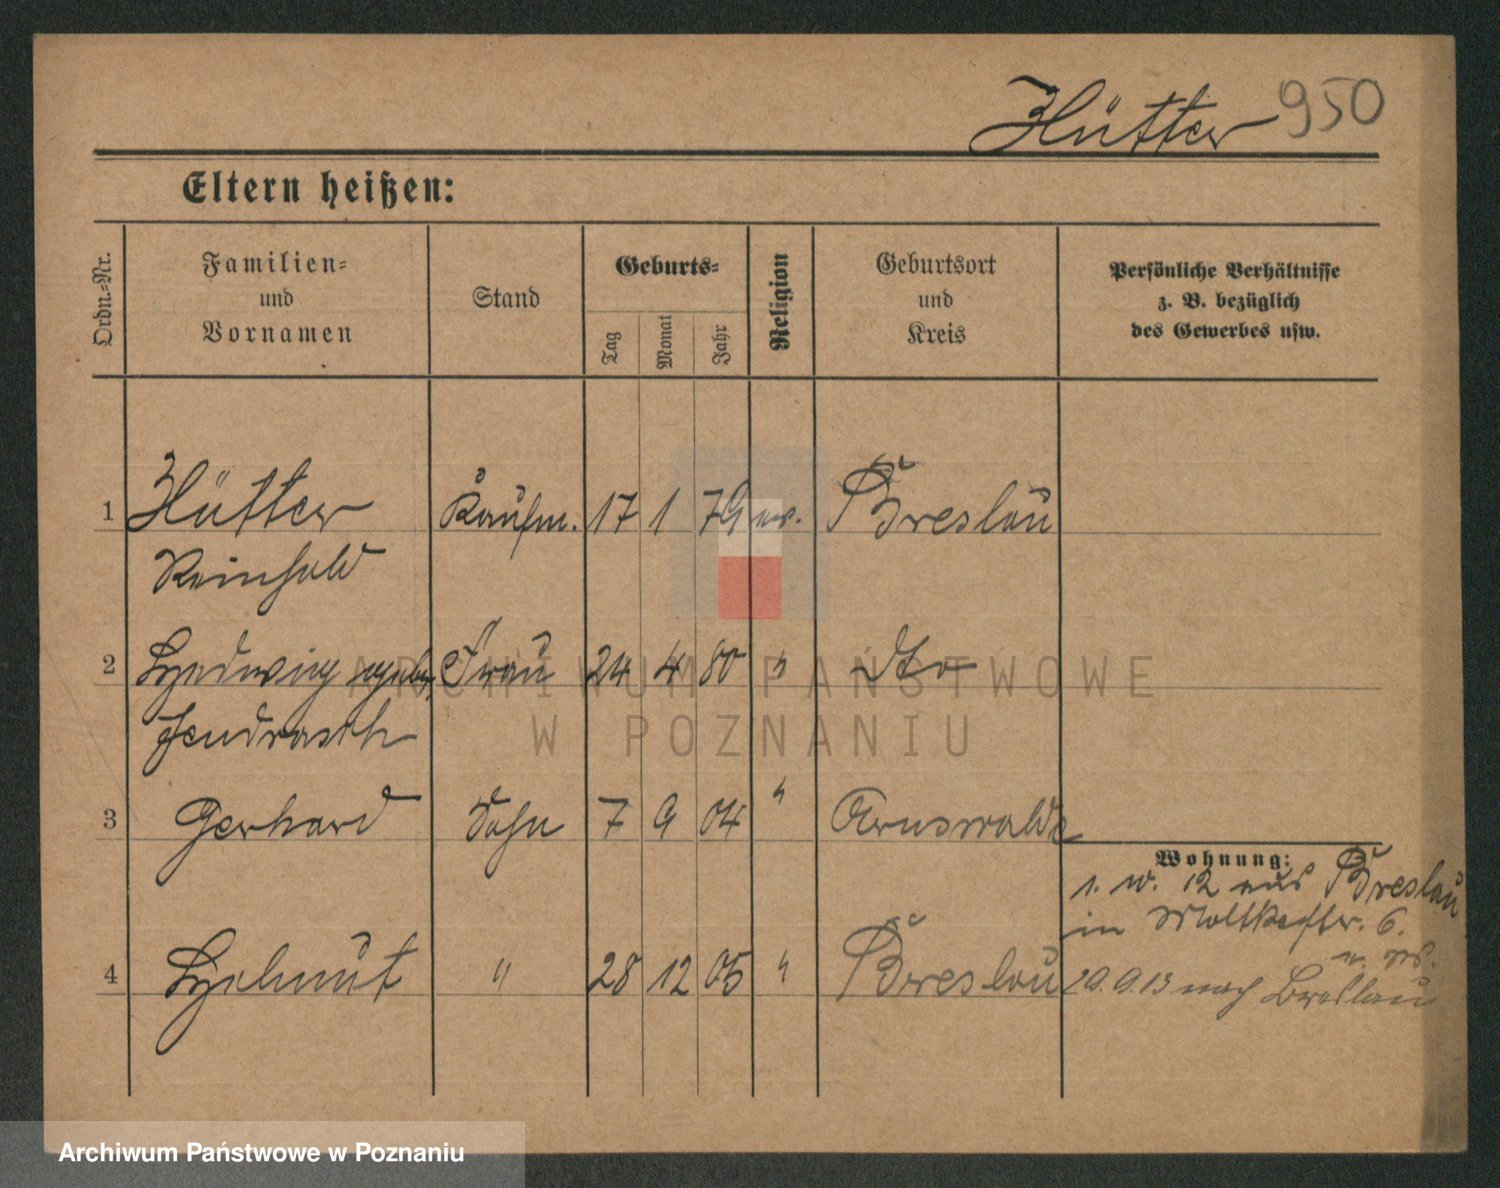 Hütter 950
Eltern heißen:
Ordn.-Nr.
Familien-
und
Vornamen
Stand
Geburts-
Tag
Monat
Jahr
Religion
Geburtsort
und
Kreis
Persönliche Verhältnisse
z. B. bezüglich
des Gewerbes usw.
1 Hütter Kaufm. 17 1 79 ev. Breslau
Reinhold
2 Hedwig geb. Frau 24 4 80 " dto
Jendrasik
3 Gerhard Sohn 7 9 04 " Arnswalde
Wohnung:
1. 12 aus Breslau
in Moltkestr. 6.
4 Helmut " 28 12 05 " Breslau
29.9.13 nach Breslau
ARCHIWUM PAŃSTWOWE
W POZNANIU
Archiwum Państwowe w Poznaniu